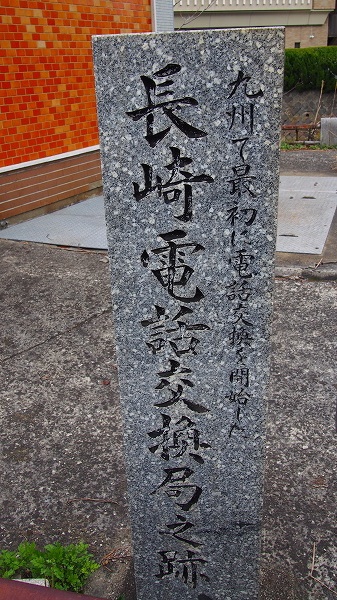 九州で最初に電話交換を開始した
長崎電話交換局之跡